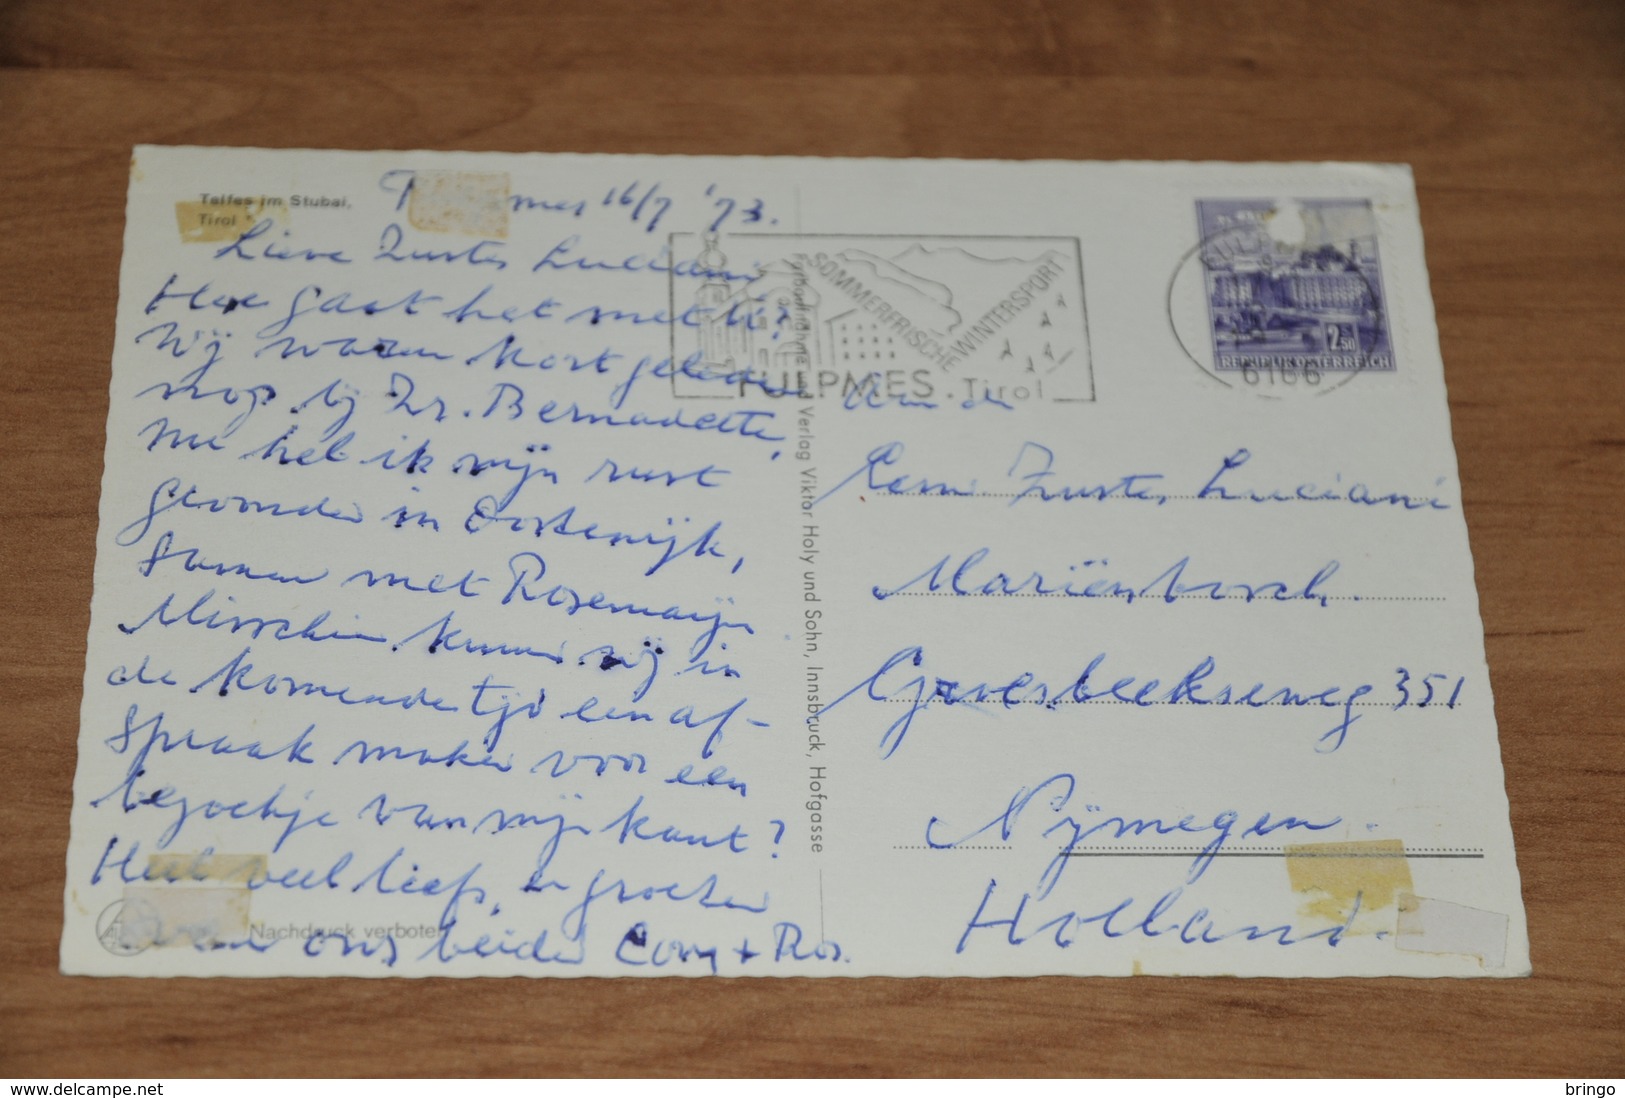 Telfes im Stubai,
Tirol
mes 16/7 '73.
Lieve Zuster Luciani
Hoe gaat het met U?
Wij waren kort geleden
nog bij Zr. Bernadette,
nu heb ik mijn rust
gevonden in Oostenrijk,
samen met Rosemarijn
Misschien kunnen wij in
de komende tijd een af-
spraak maken voor een
bezoekje van mijn kant?
Heel veel liefs, en groeten
van ons beiden Cony + Ros.
Nachdruck verboten
Farbaufnahme und Verlag Viktor Holy und Sohn, Innsbruck, Hofgasse
SOMMERFRISCHE
WINTERSPORT
FULPMES . Tirol
FULPMES
6166
2.50
REPUBLIK ÖSTERREICH
Aan de
Eerw. Zuster Luciani
Mariënbosch.
Groesbeekseweg 351
Nijmegen.
Holland.
www.delcampe.net
bringo